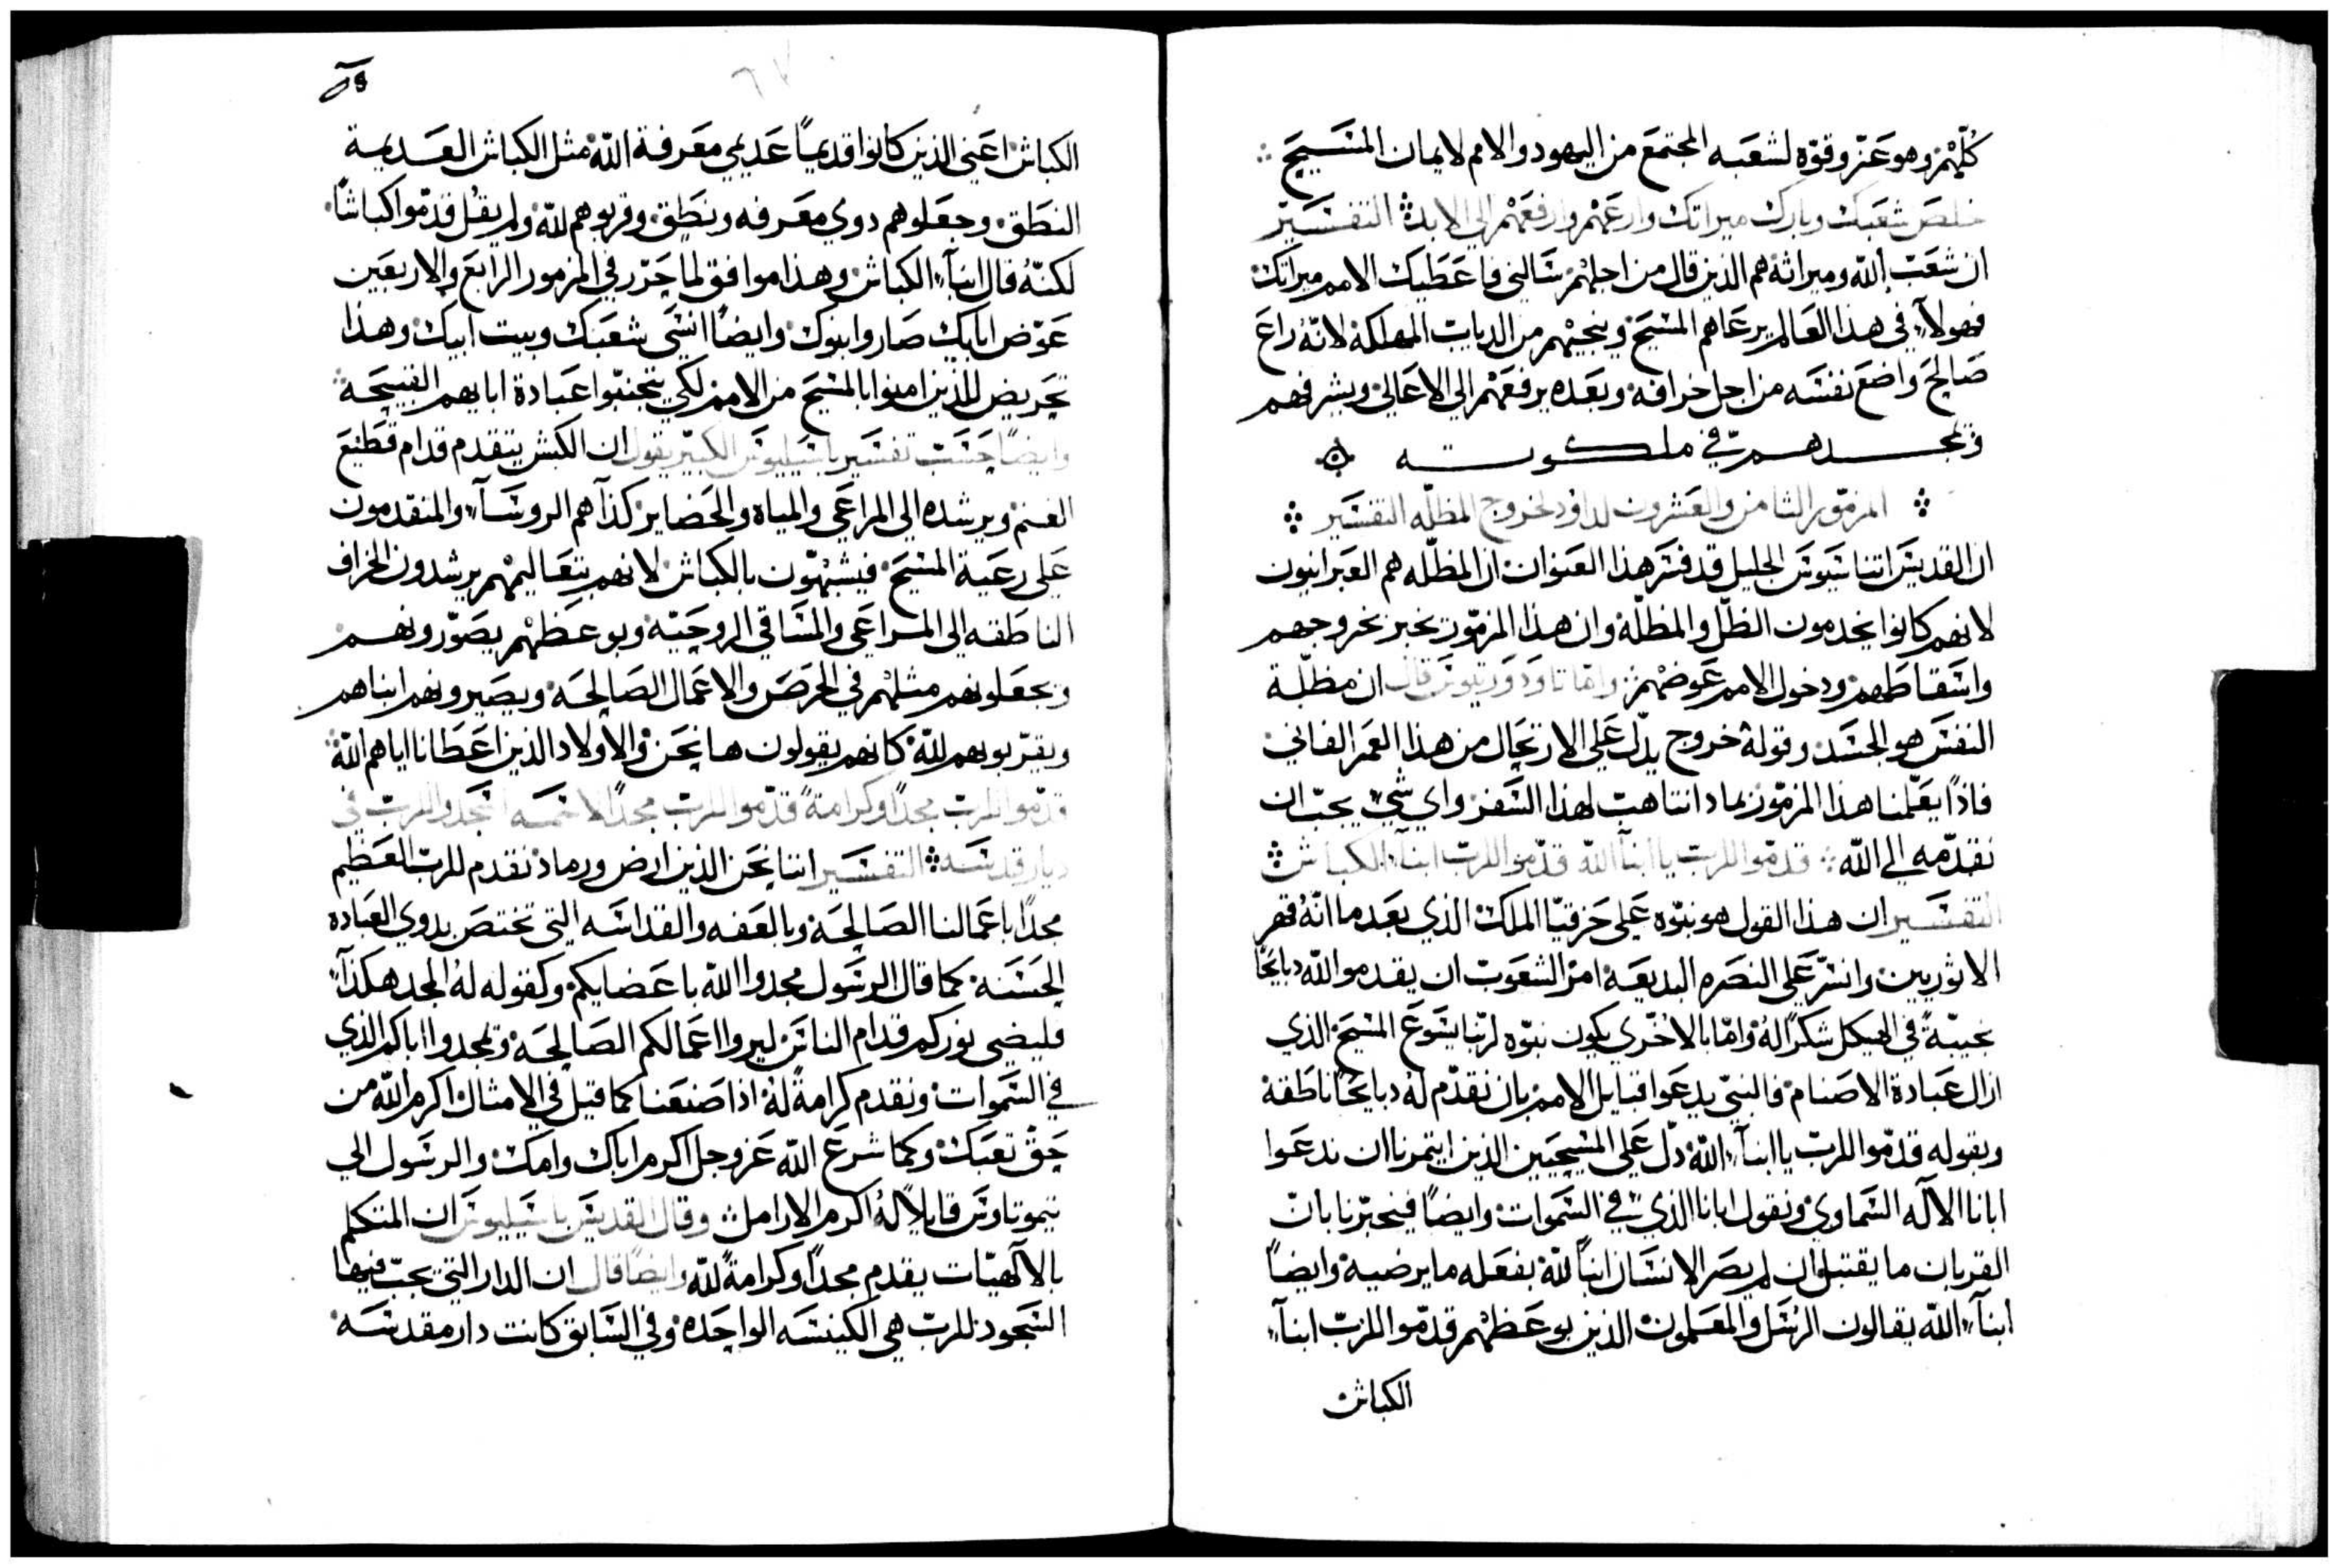 كلهم وهو عز وقوه لشعبه المجتمع من اليهود والامم لايمان المسيح
خلص شعبك وبارك ميراتك وارعهم وارفعهم الي الابد التفسير
ان شعب الله وميراثه هم الذين قال من اجلهم سالني فاعطيك الامم ميراتك
فهولاء في هذا العالم يرعاهم المسيح وينجيهم من الديات المهلكة لانه راع
صالح واضع نفسه من اجل خرافه وبعده يرفعهم الي الاعالي ويشرفهم
ويمجدهم في ملكوته
المزمور الثامن والعشرون لداود لخروج المظله التفسير
ان القديس اتناسيوس الجليل قد فسر هذا العنوان ان المظله هم العبرانيون
لانهم كانوا يخدمون الظل والمظلة وان هذا المزمور يخبر بخروجهم
واسقاطهم ودخول الامم عوضهم واما تاودوريتوس قال ان مظلة
النفس هو الجسد وقوله خروج يدل علي الارتحال من هذا العمر الفاني
فاذا يعلمنا هذا المزمور بماد انتاهب لهذا السفر واي شي يجب ان
نقدمه الي الله قدموا للرب يا ابنا الله قدموا للرب ابناء الكباش
التفسير ان هذا القول هو نبوه علي حزقيا الملك الذي بعد ما انه قهر
الاثوريين وانسر علي النصره البديعة امر الشعوب ان يقدموا لله دبايحا
نحيبة في الهيكل شكرا له واما بالاخري يكون نبوه لربنا يسوع المسيح الذي
ازال عبادة الاصنام فالنبي يدعوا قبايل الامم بان نقدم له دبايحا ناطقة
وبقوله قدموا للرب يا ابناء الله دل علي المسيحيين الذين ايتمرنا ان ندعوا
ابانا الاله السماوي ونقول ابانا الذي في السموات وايضا فيخبرنا بان
القربان ما يقتبل ان لم يصر الانسان ابنا لله بفعله ما يرضيه وايضا
ابناء الله يقالون الرسل والمعلمون الذين بوعظهم قدموا للرب ابناء
الكباش
الكباش اعني الذين كانوا قديما عديمي معرفة الله مثل الكباش العديمة
النطق وجعلوهم دوي معرفه ونطق وقربوهم لله ولم يقل قدموا كباشا
لكنه قال ابناء الكباش وهذا موافق لما حرر في المزمور الرابع والاربعين
عوض ابايك صاروا بنوك وايضا انسي شعبك وبيت ابيك وهذا
تحريض للذين امنوا بالمسيح من الامم لكي يتجنبوا عبادة ابايهم القبيحه
وايضا حسب تفسير باسيليوس الكبير يقول ان الكبش يتقدم قدام قطيع
الغنم ويرشده الي المراعي والمياه والحضاير كذا هم الروساء والمتقدمون
علي رعية المسيح فيشبهون بالكباش لانهم بتعاليمهم يرشدون الخراف
الناطقه الي المراعي والمساقي الروحيه وبوعظهم يصورونهم
ويجعلونهم مثلهم في الحرص والاعمال الصالحة ويصيرونهم ابناهم
ويقربونهم لله كانهم يقولون ها نحن والاولاد الذين اعطانا اياهم الله
قدموا للرب مجدا وكرامة قدموا للرب مجدا لاسمه اسجدوا للرب في
ديار قدسه التفسير اننا نحن الذين ارض ورماد نقدم للرب العظيم
مجدا باعمالنا الصالحة وبالعفه والقداسه التي تختص بدوي العباده
الحسنه كما قال الرسول مجدوا الله باعضايكم وكقوله له المجد هكذا
فليضي نوركم قدام الناس ليروا اعمالكم الصالحة ويمجدوا اباكم الذي
في السموات ونقدم كرامة له اذا صنعنا كما قيل في الامثال اكرم الله من
حق تعبك وكما شرع الله عز وجل اكرم اباك وامك والرسول الي
تيموتاوس قايلا له اكرم الارامل وقال القديس باسيليوس ان المتكلم
بالالهيات يقدم مجدا وكرامة لله وايضا قال ان الدار التي يجب فيها
السجود للرب هي الكنيسه الواحده وفي السابق كانت دار مقدسه